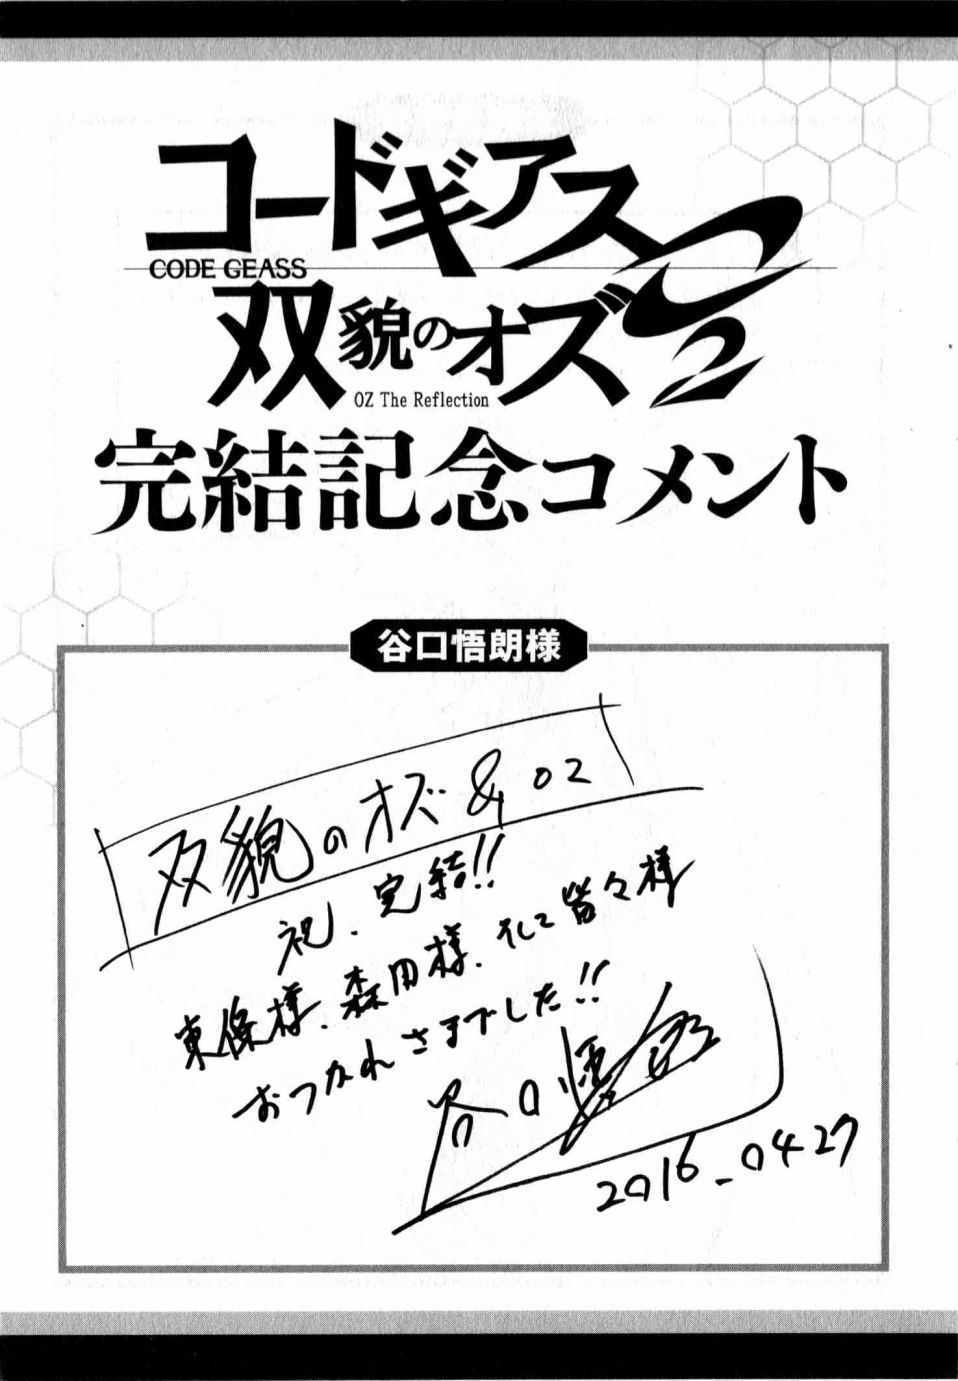 コードギアス
CODE GEASS
双貌のオズ O2
OZ The Reflection
完結記念コメント
谷口悟朗様
双貌のオズ & O2
祝、完結!!
東條様、森田様、そして皆々様
おつかれさまでした!!
谷口悟朗
2016_0427